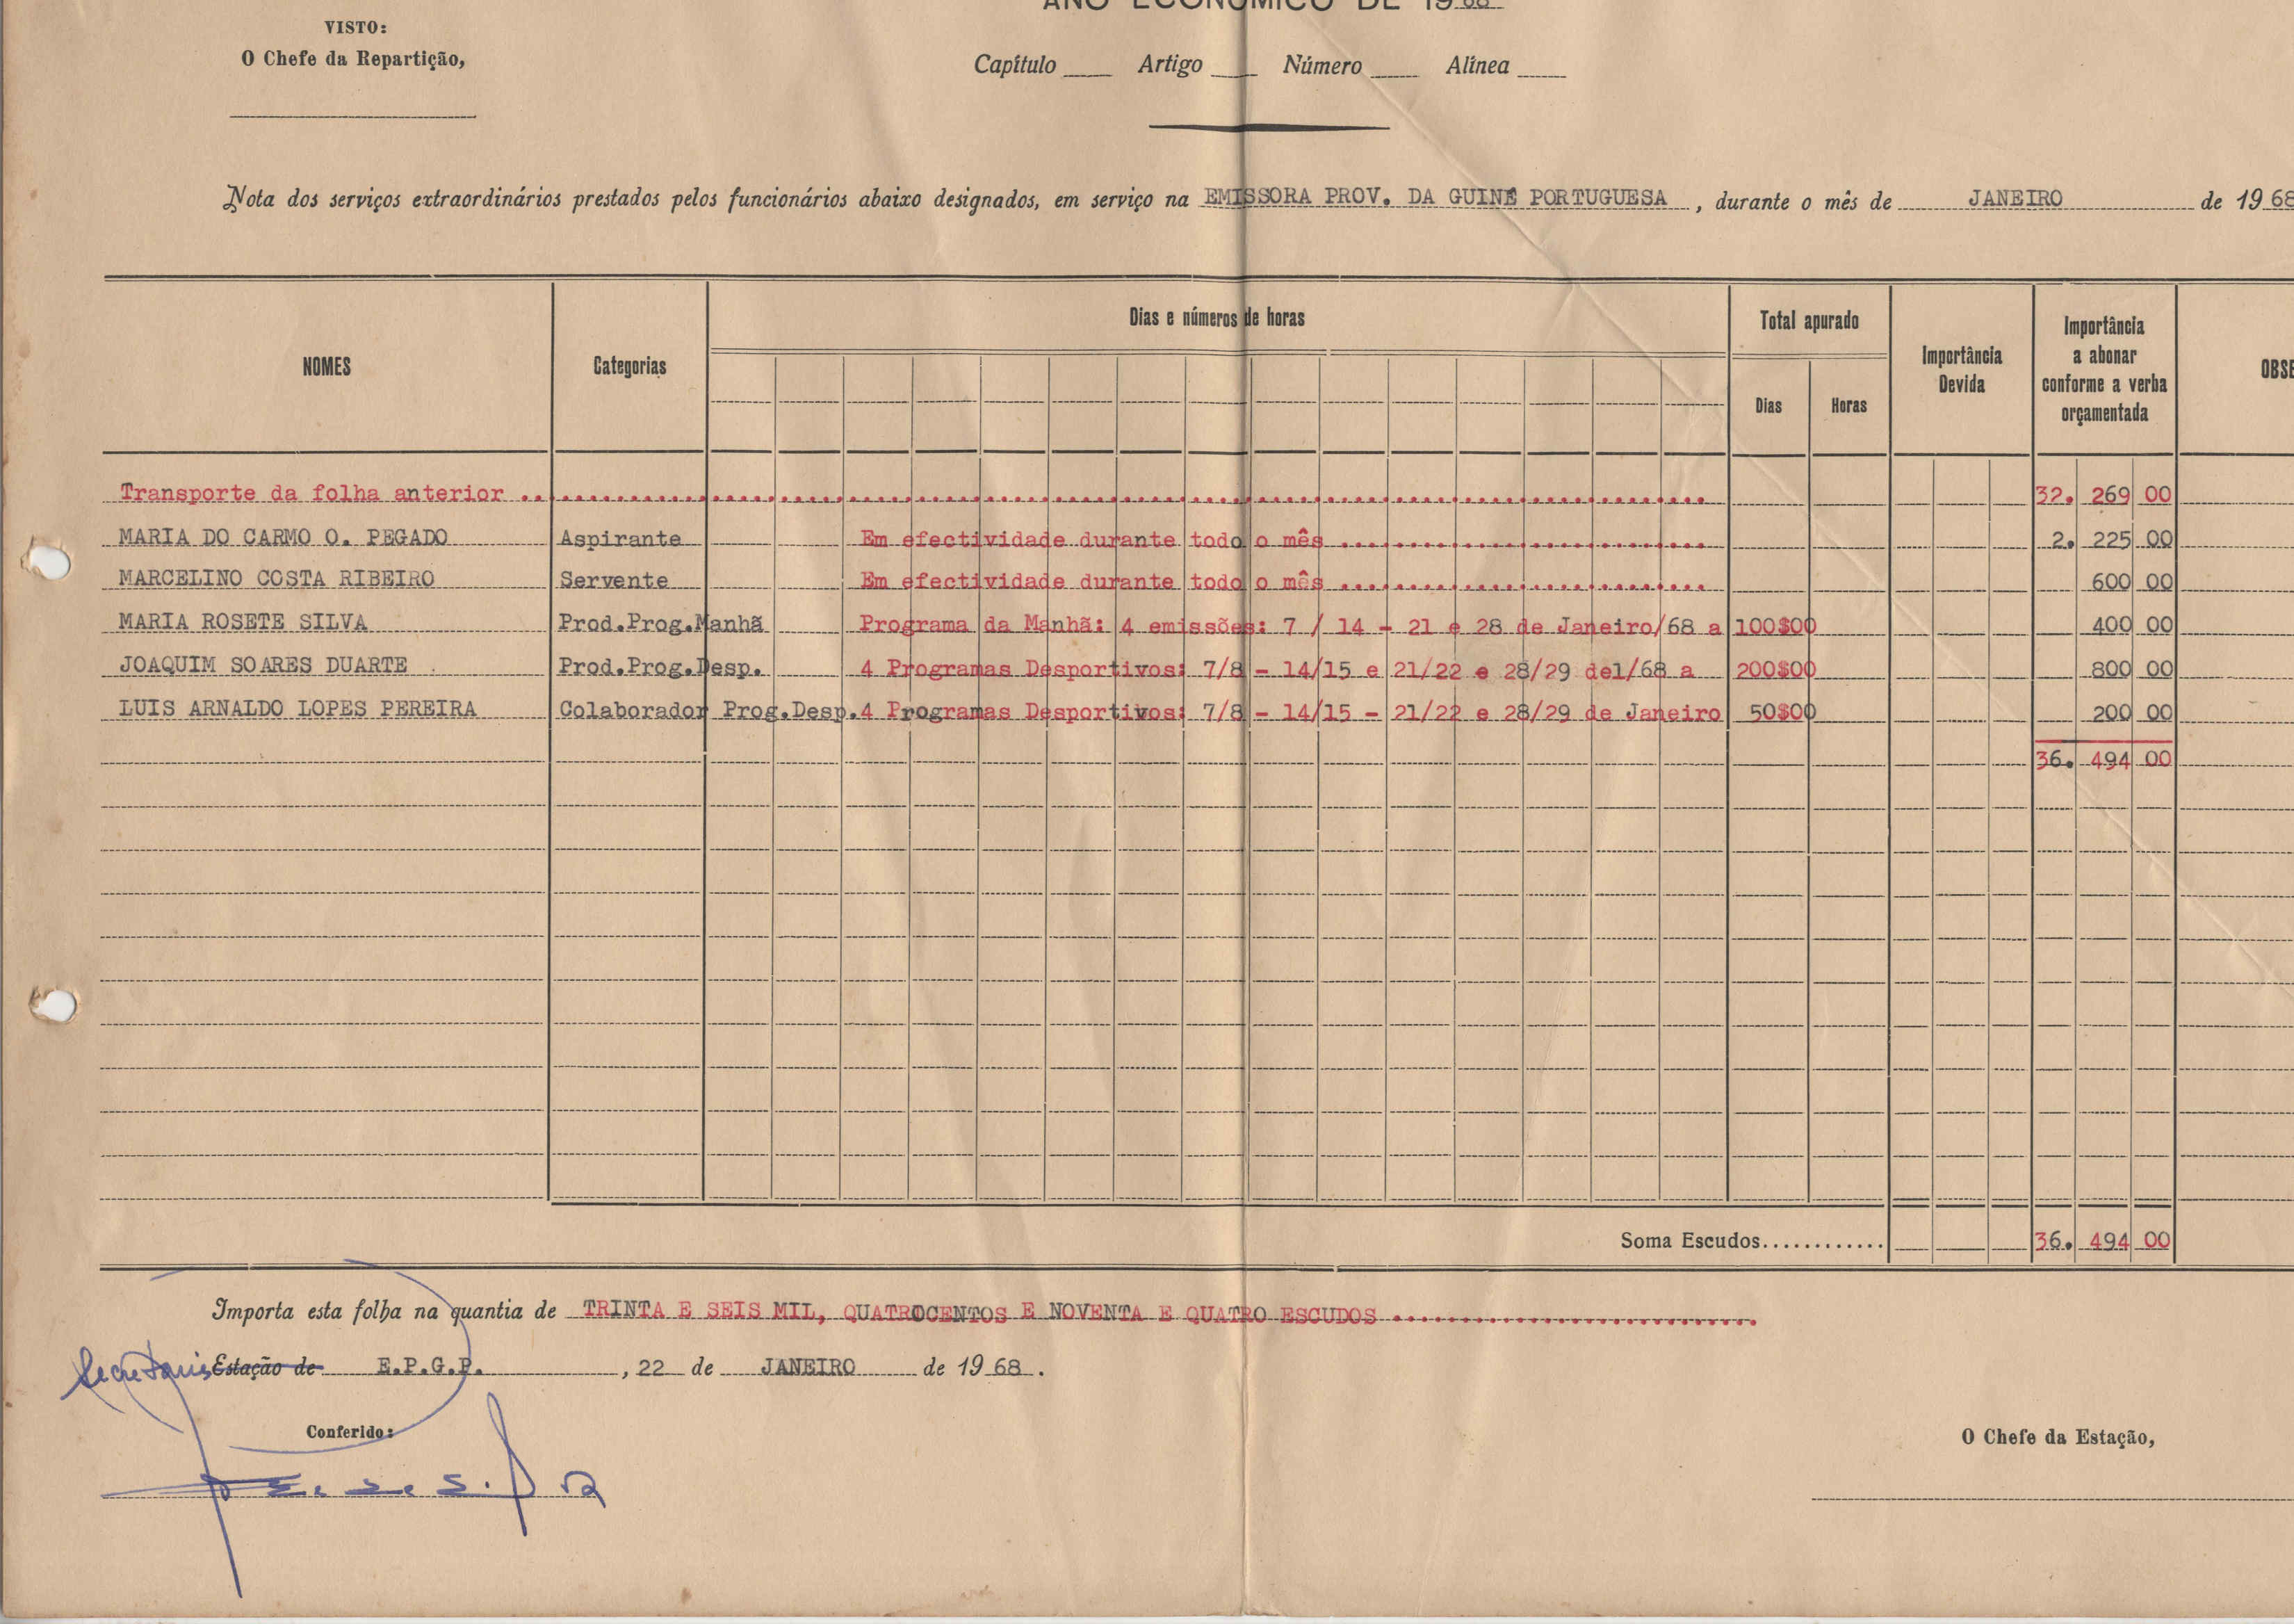 ANO ECONÓMICO DE 1968
VISTO:
O Chefe da Repartição,
Capítulo Artigo Número Alínea
Nota dos serviços extraordinários prestados pelos funcionários abaixo designados, em serviço na EMISSORA PROV. DA GUINÉ PORTUGUESA, durante o mês de JANEIRO de 1968
NOMES
Categorias
Dias e números de horas
Total apurado
Dias
Horas
Importância
Devida
Importância
a abonar
conforme a verba
orçamentada
OBSE
Transporte da folha anterior .......... 32. 269 00
MARIA DO CARMO O. PEGADO Aspirante Em efectividade durante todo o mês .......... 2. 225 00
MARCELINO COSTA RIBEIRO Servente Em efectividade durante todo o mês .......... 600 00
MARIA ROSETE SILVA Prod.Prog.Manhã Programa da Manhã: 4 emissões: 7 / 14 - 21 e 28 de Janeiro/68 a 100$00 400 00
JOAQUIM SOARES DUARTE Prod.Prog.Desp. 4 Programas Desportivos: 7/8 - 14/15 e 21/22 e 28/29 de1/68 a 200$00 800 00
LUIS ARNALDO LOPES PEREIRA Colaborador Prog.Desp. 4 Programas Desportivos: 7/8 - 14/15 - 21/22 e 28/29 de Janeiro 50$00 200 00
36. 494 00
Soma Escudos............ 36. 494 00
Importa esta folha na quantia de TRINTA E SEIS MIL, QUATROCENTOS E NOVENTA E QUATRO ESCUDOS ..........
Estação de E.P.G.P. , 22 de JANEIRO de 1968.
Conferido:
O Chefe da Estação,